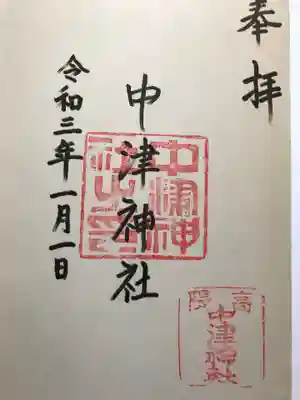 奉拝
中津神社
令和三年一月一日
中津神社之印
高岡
中津神社